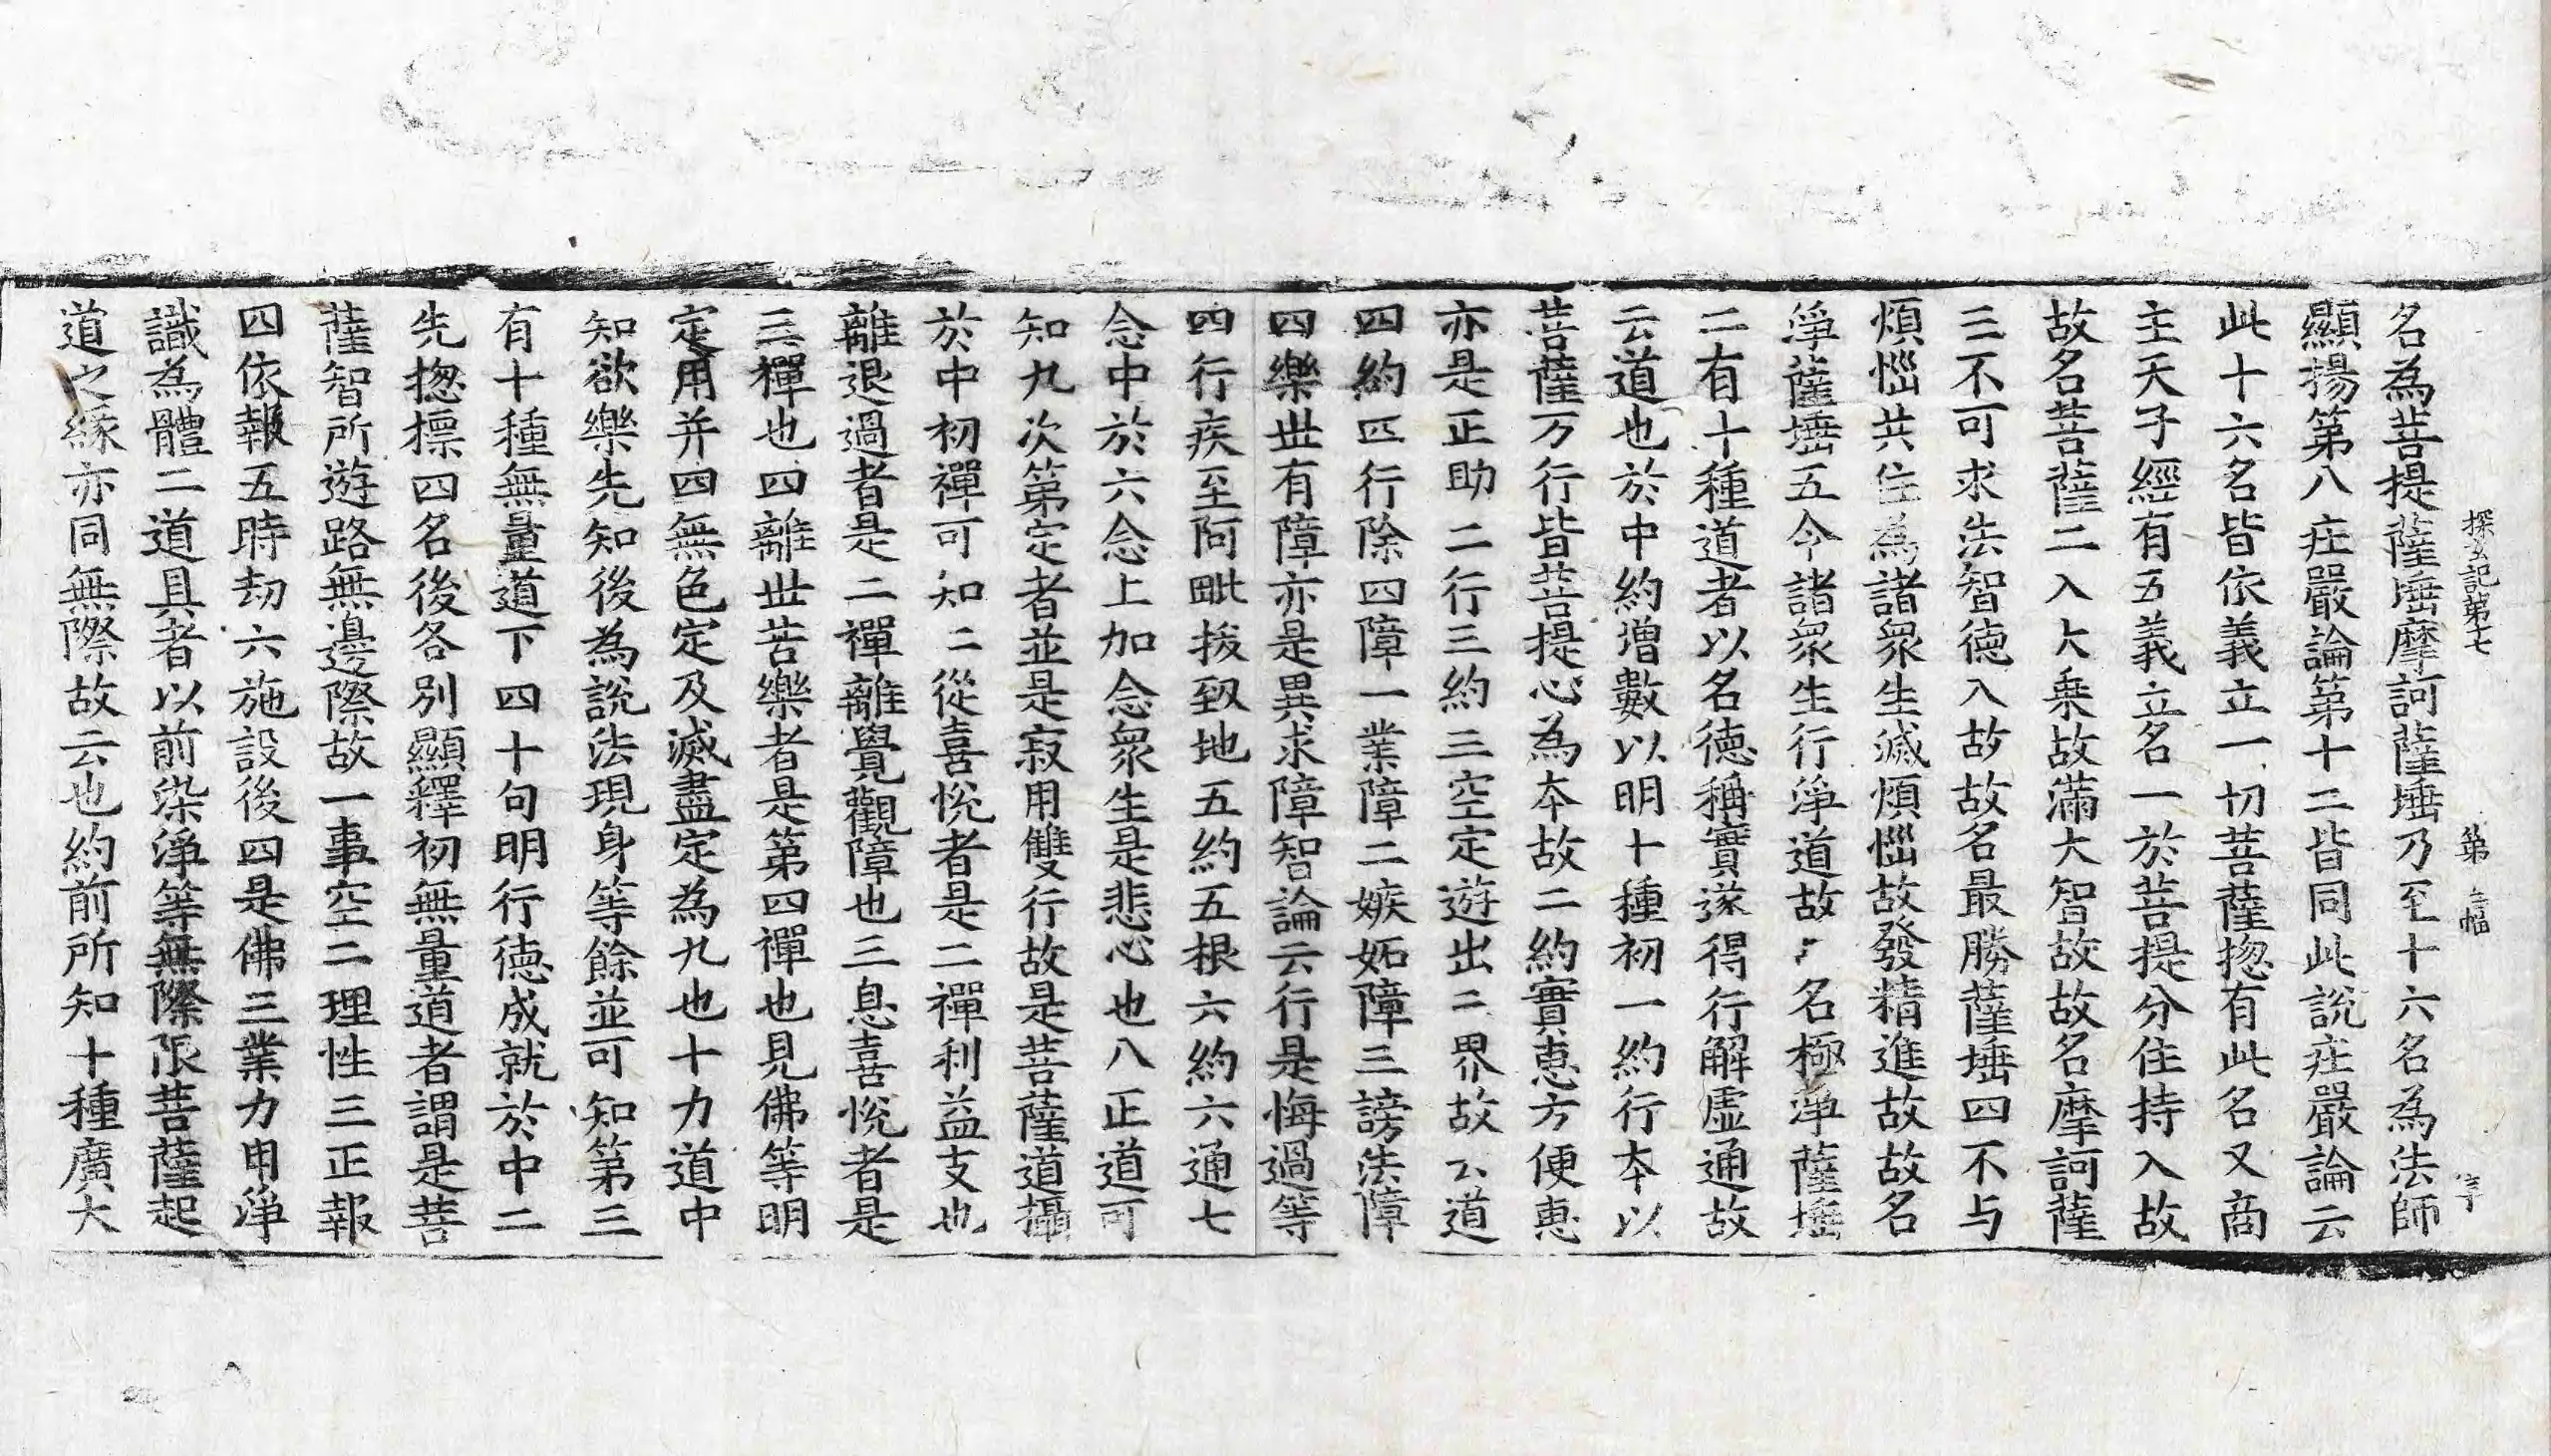 探玄記第十七 第三幅 宇
名為菩提薩埵摩訶薩埵乃至十六名為法師
顯揚第八庄嚴論第十二皆同此說庄嚴論云
此十六名皆依義立一切菩薩揔有此名又商
主天子經有五義立名一於菩提分住持入故
故名菩薩二入大乗故滿大智故故名摩訶薩
三不可求法智徳入故故名最勝薩埵四不与
煩惱共住為諸衆生滅煩惱故發精進故故名
淨薩埵五今諸衆生行淨道故名極淨薩埵
二有十種道者以名徳稱實遂得行解虛通故
云道也於中約增數以明十種初一約行本以
菩薩万行皆菩提心為本故二約實恵方便恵
亦是正助二行三約三空定遊出三界故云道
四約四行除四障一業障二嫉妬障三謗法障
四樂世有障亦是異求障智論云行是悔過等
四行疾至阿毗拔致地五約五根六約六通七
念中於六念上加念衆生是悲心也八正道可
知九次第定者並是寂用雙行故是菩薩道攝
於中初禪可知二從喜悅者是二禪利益支也
離退過者是二禪離覺觀障也三息喜悅者是
三禪也四離世苦樂者是第四禪也見佛等明
定用并四無色定及滅盡定為九也十力道中
知欲樂先知後為說法現身等餘並可知第三
有十種無量道下四十句明行徳成就於中二
先揔摽四名後各別顯釋初無量道者謂是菩
薩智所遊路無邊際故一事空二理性三正報
四依報五時劫六施設後四是佛三業力用淨
識為體二道具者以前染淨等無際限菩薩起
道之緣亦同無際故云也約前所知十種廣大